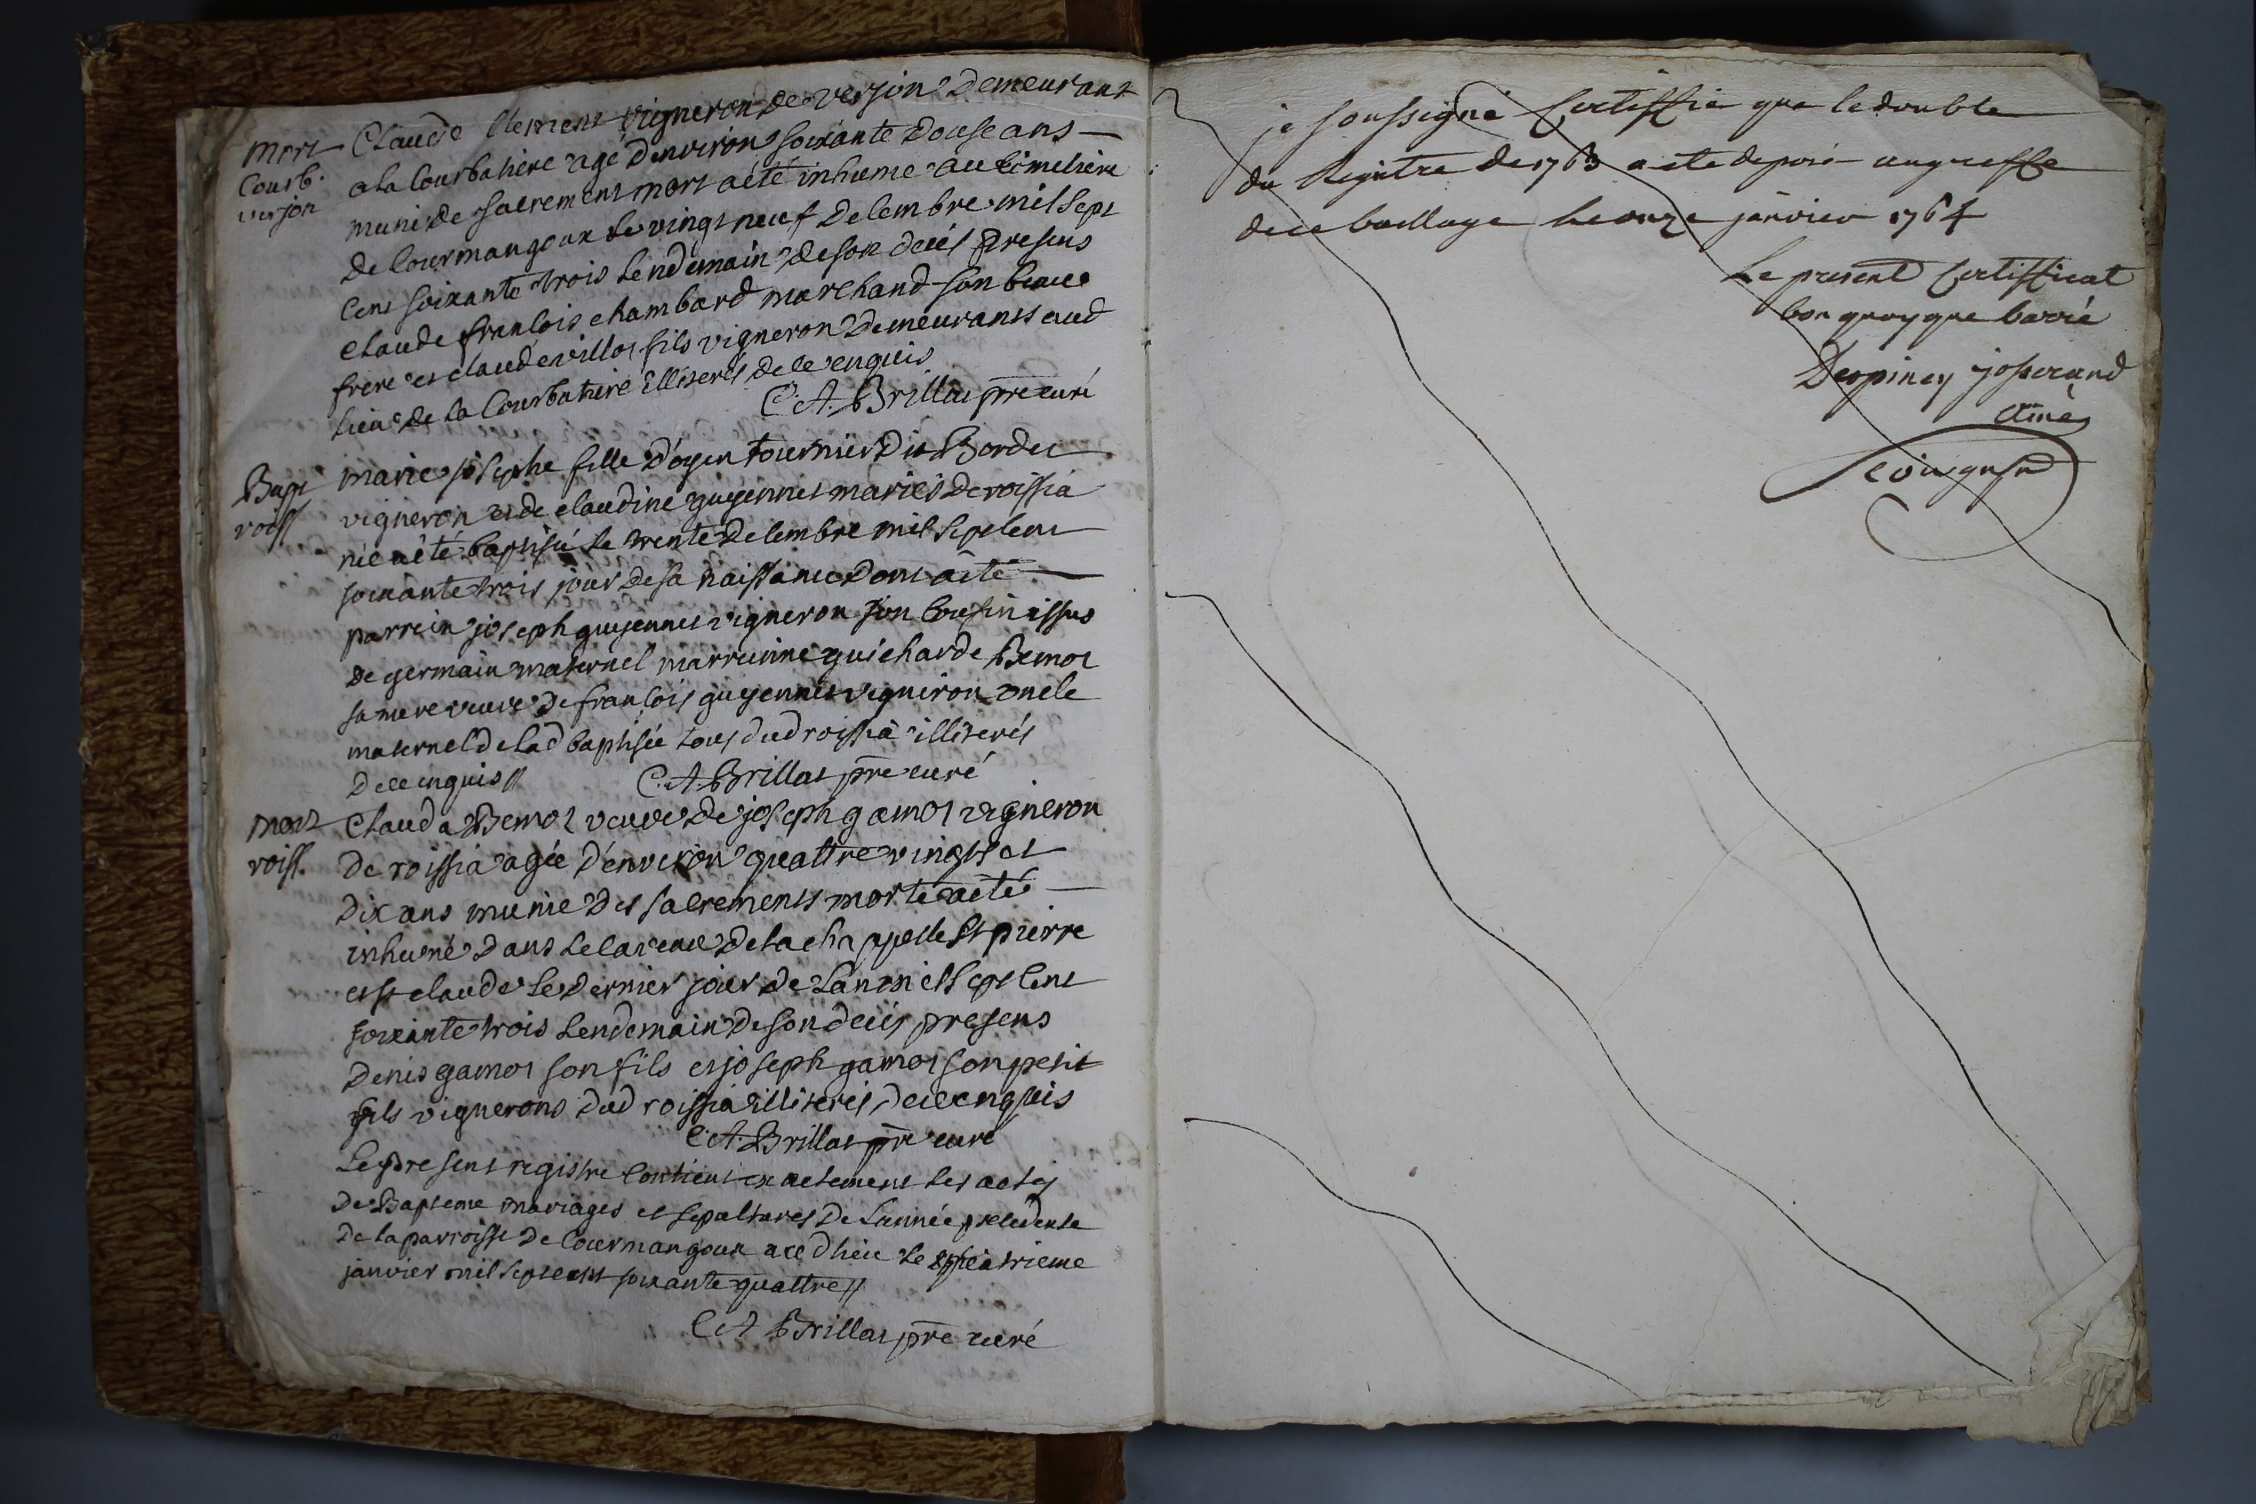 mort Claude Clement vigneron de verjon demeurant
Courb. a la Courbatiere agé d'environ soixante douse ans
verjon muni de sacrement mort a été inhumé au cimetière
de Courmangoux le vingt neuf decembre mil sept
cent soixante trois lendemain de son decés presens
claude françois chambard marchand son beau
frere et claude villot fils vigneron demeurants aud
lieu de la Courbatiere illiterés de ce enquis
C. A. Brillat pre curé
Bapt marie josephe fille d'oyen tournier dit Bordet
voiss vigneron et de claudine guyennet mariés de roissia
née a été baptisée le trente decembre mil sept cent
soixante trois jour de sa naissance dont a été
parrein joseph guyennet vigneron son cousin issus
de germain maternel marreinne guicharde Bemot
sa mere veuve de françois guyennet vigneron oncle
maternel de lad baptisée tous dud roissia illiterés
de ce enquis //
C. A. Brillat pre curé
mort Clauda Bemot veuve de joseph gamot vigneron
roiss. de roissia agée d'environ quattre vingts et
dix ans munie des sacrements morte a été
inhumé dans le caveau de la chappelle st pierre
et st claude le dernier jour de l'an mil sept cent
soixante trois lendemain de son decés presens
denis gamot son fils et joseph gamot son petit
fils vignerons dud roissia illiterés de ce enquis
C. A. Brillat pre curé
Le present registre contient exactement les actes
de Bapteme mariages et sepultures de l'année precedente
de la parroisse de Courmangoux a ce d lieu le quatrieme
janvier mil sept cent soixante quattre //
C A Brillat pre curé
je soussigné certiffie que le double
du Registre de 1763 a ete deposé au greffe
de ce baillage le onze janvier 1764
Le present certifficat
bon quoyque barré
Despiney josserand
ainé